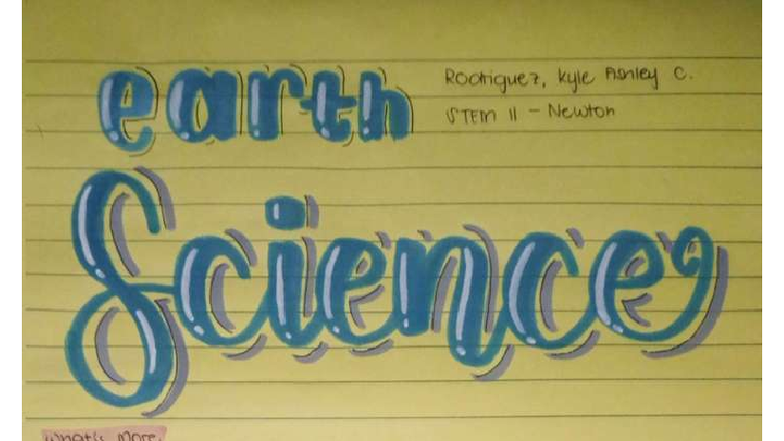 earth
Rodriguez, Kyle Ashley C.
STEM 11 - Newton
Science
What's More